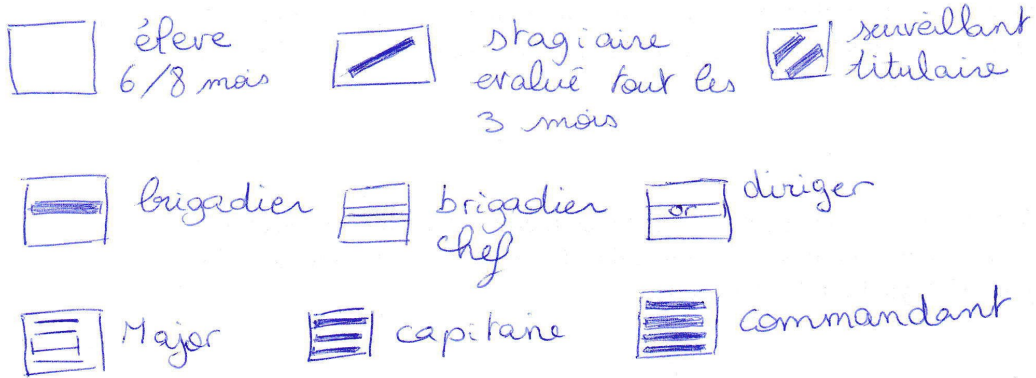 éleve
6/8 mois
stagiaire
evalué tout les
3 mois
surveillant
titulaire
brigadier
brigadier
chef
or
diriger
Major
capitaine
commandant